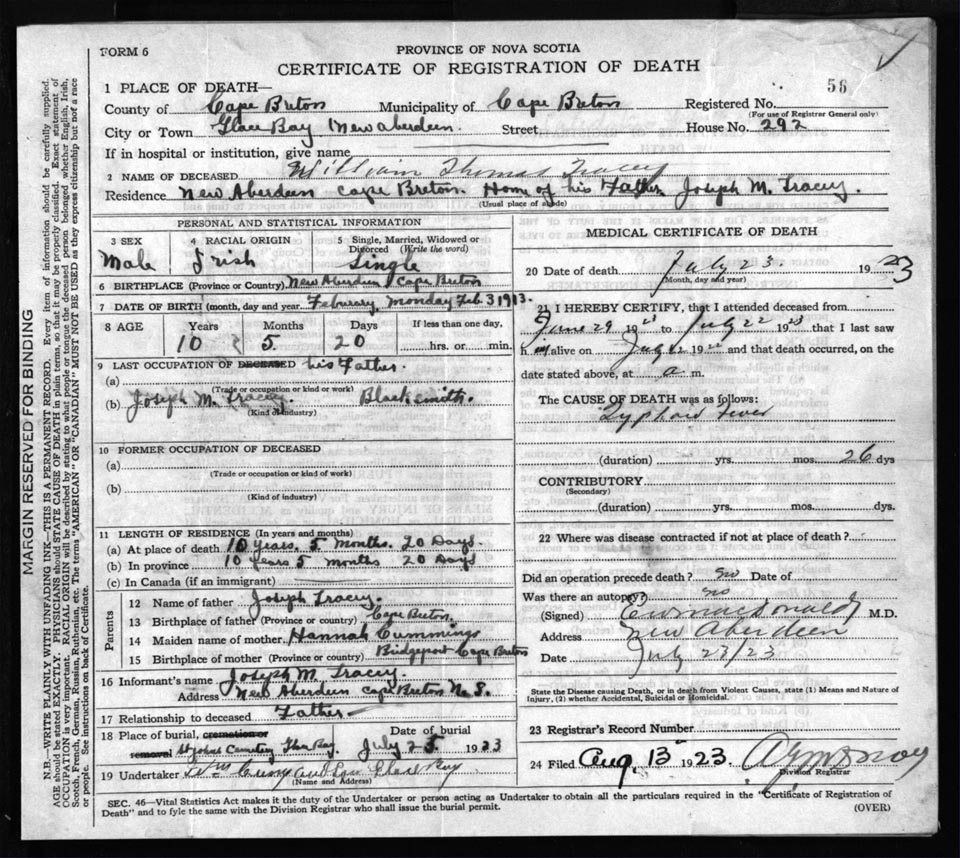 FORM 6
PROVINCE OF NOVA SCOTIA
CERTIFICATE OF REGISTRATION OF DEATH
58
1 PLACE OF DEATH—
County of Cape Breton Municipality of Cape Breton Registered No.
(For use of Registrar General only)
City or Town Glace Bay New Aberdeen Street House No. 292
If in hospital or institution, give name
2 NAME OF DECEASED William Thomas Tracey
Residence New Aberdeen Cape Breton. Home of his Father Joseph M. Tracey.
(Usual place of abode)
PERSONAL AND STATISTICAL INFORMATION
3 SEX
Male
4 RACIAL ORIGIN
Irish
5 Single, Married, Widowed or Divorced (Write the word)
Single
6 BIRTHPLACE (Province or Country) New Aberdeen Cape Breton
7 DATE OF BIRTH (month, day and year) Feburary, Monday Feb. 3 1913.
8 AGE Years Months Days If less than one day,
10 5 20 hrs. or min.
9 LAST OCCUPATION OF DECEASED his Father.
(a)
(Trade or occupation or kind or work)
(b) Joseph M. Tracey. Blacksmith.
(Kind of industry)
10 FORMER OCCUPATION OF DECEASED
(a)
(Trade or occupation or kind of work)
(b)
(Kind of industry)
11 LENGTH OF RESIDENCE (In years and months)
(a) At place of death 10 years, 5 Months. 20 Days.
(b) In province 10 years 5 months 20 Days
(c) In Canada (if an immigrant)
Parents
12 Name of father Joseph Tracey.
13 Birthplace of father (Province or country) Cape Breton.
14 Maiden name of mother Hannah Cummings
15 Birthplace of mother (Province or country) Bridgeport Cape Breton
16 Informant's name Joseph M. Tracey.
Address New Aberdeen Cape Breton N.S.
17 Relationship to deceased Father
18 Place of burial, cremation or removal Date of burial
Cemetery July 25 1923
19 Undertaker Glace Bay
(Name and Address)
MEDICAL CERTIFICATE OF DEATH
20 Date of death July 23. 1923
(Month, day and year)
21 I HEREBY CERTIFY, that I attended deceased from
June 29 1923 to July 22 1923 that I last saw
him alive on July 22 19 and that death occurred, on the
date stated above, at a m.
The CAUSE OF DEATH was as follows:
Typhoid Fever
(duration) yrs. mos. 26 dys
CONTRIBUTORY
(Secondary)
(duration) yrs. mos. dys.
22 Where was disease contracted if not at place of death?
Did an operation precede death? no Date of
Was there an autopsy? no
(Signed) M.D.
Address New Aberdeen
Date July 23/23
State the Disease causing Death, or in death from Violent Causes, state (1) Means and Nature of
Injury, and (2) whether Accidental, Suicidal or Homicidal.
23 Registrar's Record Number
24 Filed Aug. 13 1923.
Division Registrar
SEC. 46—Vital Statistics Act makes it the duty of the Undertaker or person acting as Undertaker to obtain all the particulars required in the "Certificate of Registration of
Death" and to fyle the same with the Division Registrar who shall issue the burial permit.
(OVER)
MARGIN RESERVED FOR BINDING
N.B.—WRITE PLAINLY WITH UNFADING INK—THIS IS A PERMANENT RECORD. Every item of information should be carefully supplied.
AGE should be stated EXACTLY. PHYSICIANS should STATE CAUSE OF DEATH in plain terms, so that it may be properly classified. Exact statement of
OCCUPATION is very important. RACIAL ORIGIN will be described by stating to what people or tongue the deceased person belonged whether English, Irish,
Scotch, French, German, Russian, Ruthenian, etc. The terms "AMERICAN" OR "CANADIAN" MUST NOT BE USED as they express citizenship but not a race
or people. See instructions on back of Certificate.